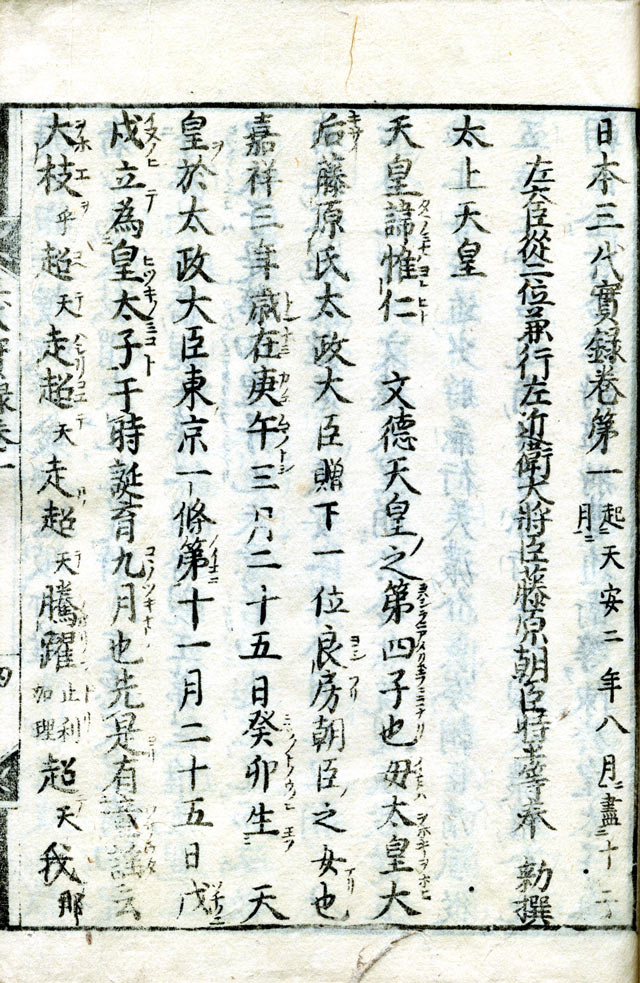 日本三代實録卷第一 起天安二年八月盡十二月
左大臣從二位兼行左近衛大將臣藤原朝臣時平等奉 勅撰
太上天皇
天皇諱惟仁 文德天皇之第四子也母太皇大
后藤原氏太政大臣贈正一位良房朝臣之女也
嘉祥三年歳在庚午三月二十五日癸卯生 天
皇於太政大臣東京一條第十一月二十五日戊
戌立為皇太子于時誕育九月也先是有童謡云
大枝乎超天走超天走超天騰躍止利加理超天我那